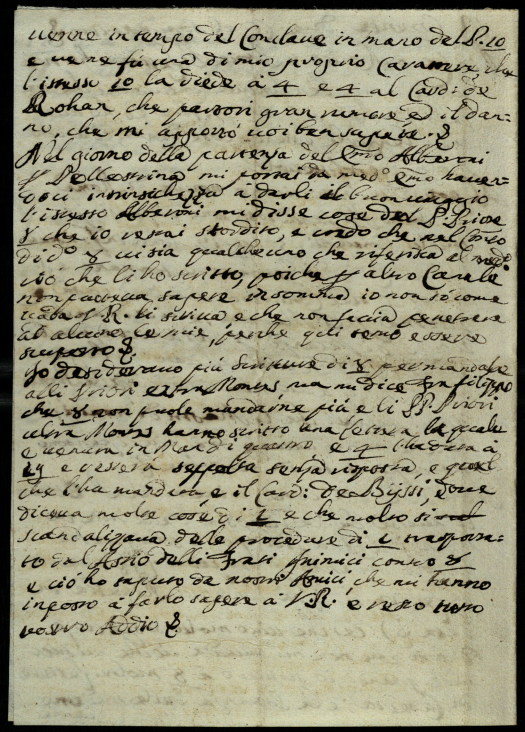 venne in tempo del Conclave in mano del P. 10
e ve ne fù una di mio proprio Carattere, che
l'istesso 10 la diede à 4 e 4 al Card: de
Rohan, che partorì gran rumore ed il dan-
no, che mi apportò voi ben sapete. &
Nel giorno della partenza del Emo Alberoni
Pellestrina mi portai da medo Emo
à darli il buon viaggio
l'istesso Alberoni mi disse cose del P. Priore
che io restai stordito, e credo che nel
di do & vi sia qualcheuno che riferisca al
ciò che li hò scritto, poiche altro Canale
non poteva sapere in somma io non sò come
V. R. li scriva e che non facia penetrare
ad alcuno le mie, perche gli temo essere
&
Io desideravo più scritture di & per mandare
alli Priori extra Montes ma mi dice fra filippo
che & non puole mandarne più e li PP. Priori
ultra Montes hanno scritto una lettera la quale
e venuta in Mani di questo e 4 l'ha data à
24 e resterà seppolta senza risposta, e quel
che l'ha mandata, è il Card: de Bissi, dove
diceva molte cose di 1 e che molto si
scandalizava delle procedure di 1 trasporta-
to dal Astio delli frati Inimici contro &
e ciò ho saputo da nostri Amici, che mi hanno
imposto à farlo sapere à V. R. e resto tutto
vostro Addio &